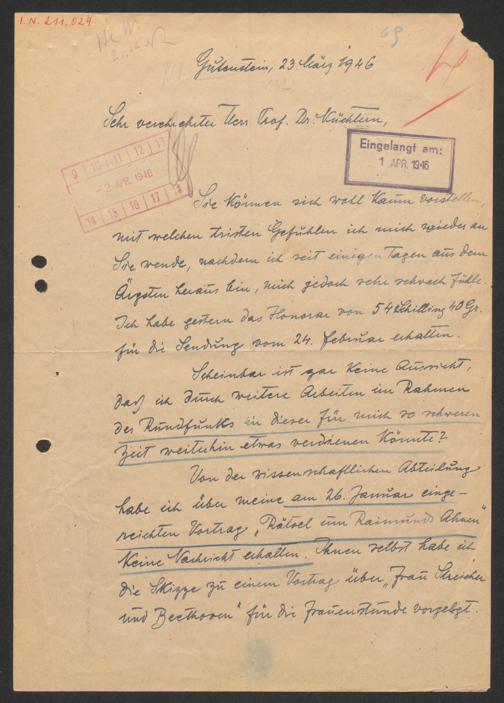 I. N. 211.029
69
Gutenstein, 23 März 1946
Sehr verehrter Herr Prof. Dr. Nüchtern,
Eingelangt am:
1 APR. 1946
9 10 11 12 13
2 APR. 1946
14 15 16 17 18
Sie können sich wohl kaum vorstellen,
mit welchen tristen Gefühlen ich mich wieder an
Sie wende, nachdem ich seit einigen Tagen aus dem
Ärgsten heraus bin, mich jedoch sehr schwach fühle.
Ich habe gestern das Honorar von 54 Schilling 40 Gr.
für die Sendung vom 24. Februar erhalten.
Scheinbar ist gar keine Aussicht,
daß ich durch weitere Arbeiten im Rahmen
des Rundfunks in dieser für mich so schweren
Zeit weiterhin etwas verdienen könnte?
Von der wissenschaftlichen Abteilung
habe ich über meine am 26. Januar einge-
reichten Vortrag „Rätsel um Raimunds Ahnen"
keine Nachricht erhalten. Ihnen selbst habe ich
die Skizze zu einem Vortrag über „Frau Streicher
und Beethoven" für die Frauenstunde vorgelegt.